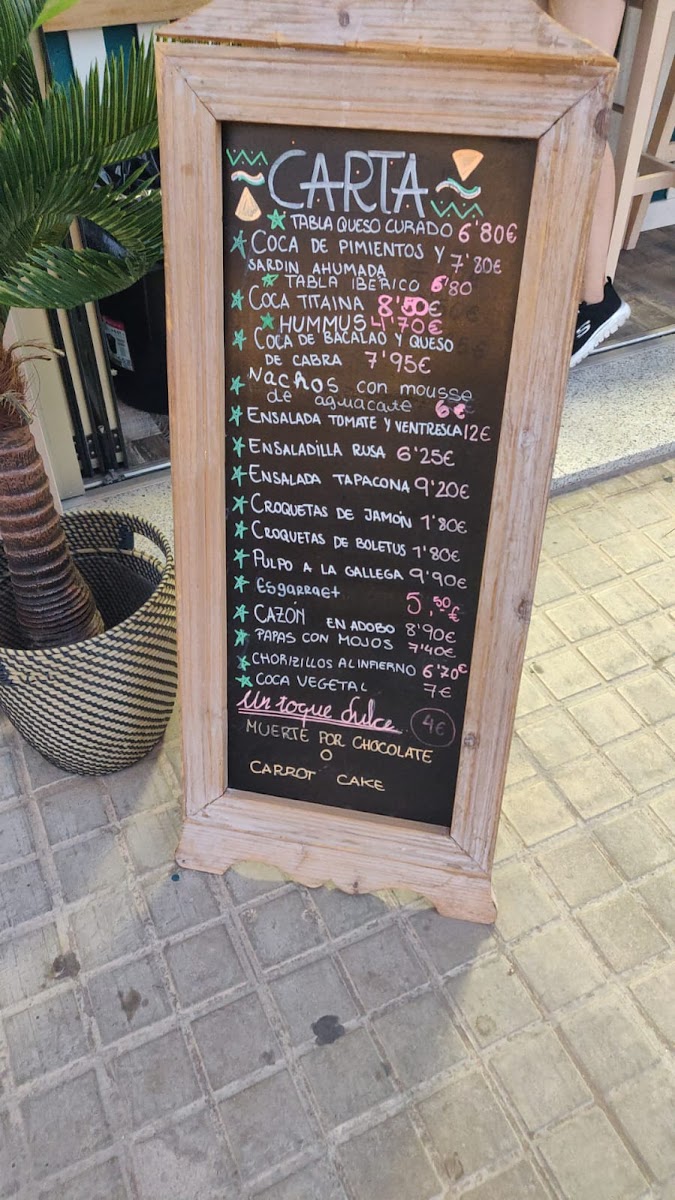 CARTA
TABLA QUESO CURADO 6'80€
COCA DE PIMIENTOS Y 7'80€
SARDIN AHUMADA
TABLA IBERICO 6'80
COCA TITAINA 8'50€
HUMMUS 4'70€
COCA DE BACALAO Y QUESO
DE CABRA 7'95€
Nachos con mousse
de aguacate 6€
ENSALADA TOMATE Y VENTRESCA 12€
ENSALADILLA RUSA 6'25€
ENSALADA TAPACONA 9'20€
CROQUETAS DE JAMÓN 1'80€
CROQUETAS DE BOLETUS 1'80€
PULPO A LA GALLEGA 9'90€
Esgarraet 5'50€
CAZÓN EN ADOBO 8'90€
PAPAS CON MOJOS 7'40€
CHORIZILLOS AL INFIERNO 6'70€
COCA VEGETAL 7€
Un toque dulce 4€
MUERTE POR CHOCOLATE
O
CARROT CAKE